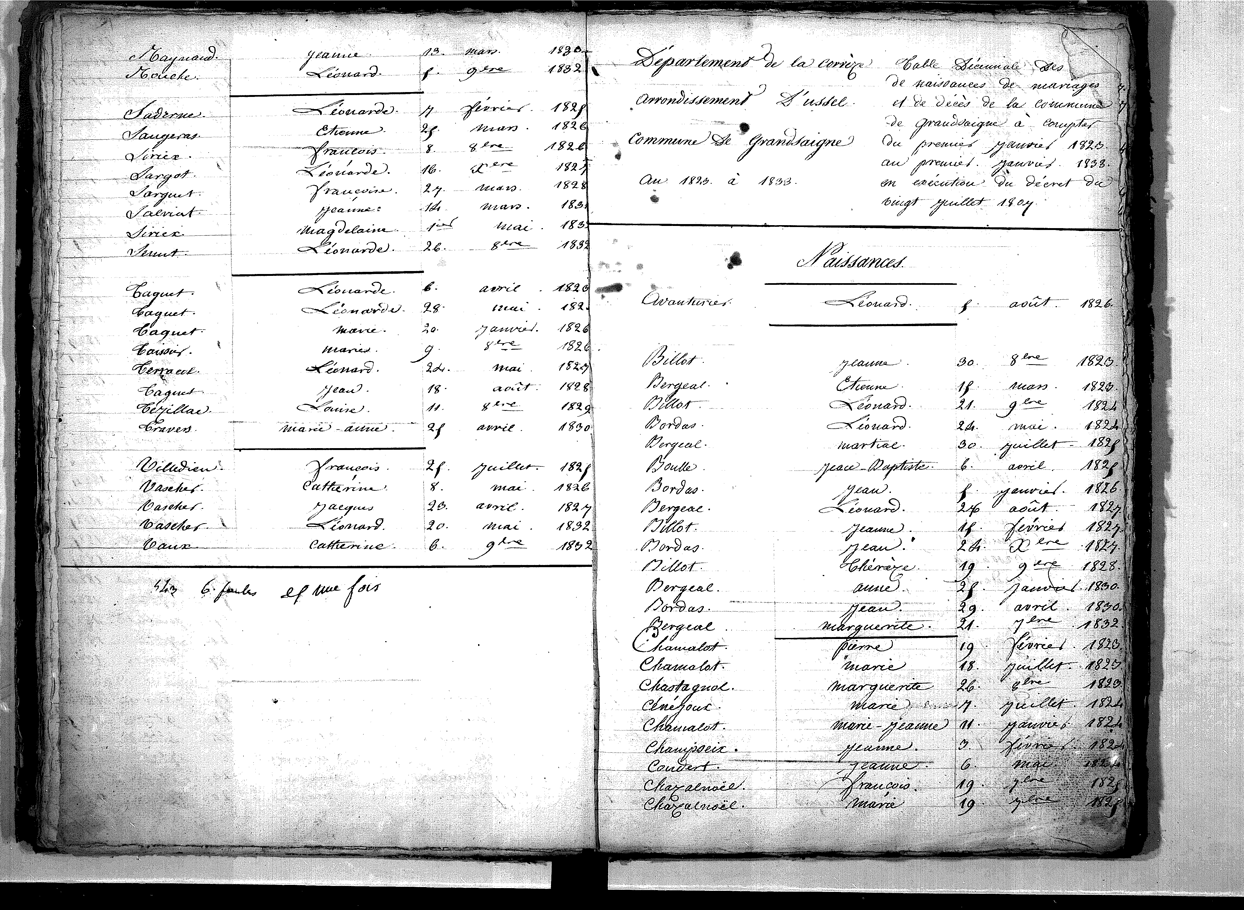 Raynaud. Jeanne. 13. mars. 1830
Rouche. Léonard. 5. 9bre 1832
Léonarde. 7. février. 1825
Saugeras. Etienne 25 mars. 1826
Sirieix. françois. 8. 8bre 1826
Sargot. Léonarde. 16. Xbre 1827
Sarguet françoise. 27 mars. 1828
Salviat. Jeanne. 14 mars. 183
Sirieix magdelaine 1er mai. 183
Léonarde. 26. 8bre 1832
Taguet. Léonarde. 6. avril. 1823
Taguet. Léonarde. 28. mai. 182
Taguet marie. 20. janvier. 1826
marie. 9. 8bre 1826
Terracol Léonard. 24. mai. 1827
Taguet Jean. 18. août. 1828
Tézillac. Louise. 11. 8bre 1829
Travers. marie-anne. 25 avril. 1830
Villedieu. françois. 25. juillet. 1825
Vascher. Catherine 8. mai. 1826
Vascher. Jacques 23. avril. 1827
Vascher Léonard. 20. mai. 1832
Vaux. Catherine. 6. 9bre 1832
543 6. et une fois
Département de la corrèze
arrondissement D'ussel.
Commune de Grandsaigne
Au 1823. à 1833.
Table Décennale des
de naissances de mariages
et de décès de la commune
de Grandsaigne à compter
du premier janvier 1823.
au premier janvier 1833.
en exécution du décret du
vingt juillet 1807
Naissances.
Avanturier Léonard. 5. août. 1826.
Billot. Jeanne. 30. 8bre 1823
Bergeal. Etienne 15. mars. 1823.
Billot. Léonard. 21. 9bre 1824
Bordas. Léonard. 24. mai. 1824
Bergeal. martial. 30. juillet. 1825
Boulle Jean-Baptiste. 6. avril. 1825
Bordas. Jean. 5. janvier. 1826
Bergeal. Léonard. 26 août. 1827
Billot. Jeanne. 15. février 1827.
Bordas. Jean. 24. Xbre 1827.
Billot. Thérèze 19. 9bre 1828.
Bergeal. anne. 25. janvier. 1830.
Bordas. Jean. 29. avril. 1830.
Bergeal marguerite. 21. 7bre 1832.
Chamalot. pierre 19. février. 1823.
Chamalot. marie 18. juillet. 1823.
Chastagnol. marguerite 26. 8bre 1823
marie 7. juillet. 1824
Chamalot. marie-jeanne 11. janvier. 1824
Champseix. Jeanne. 3. février. 1824
Coudert. Jeanne. 6 mai 1824
Chazalnoël. françois. 19. 7bre 1825
Chazalnoël. marie 19 7bre 1825